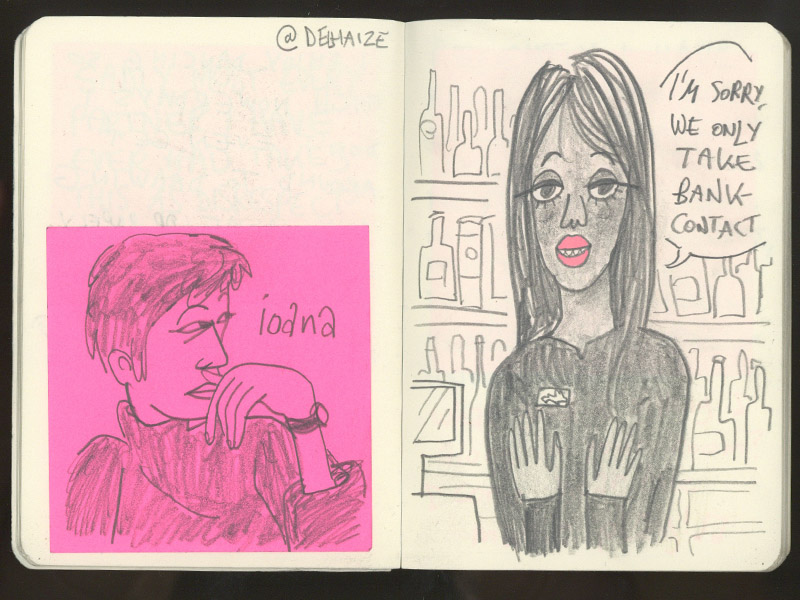 @DELHAIZE
ioana
I'M SORRY,
WE ONLY
TAKE
BANK-
CONTACT